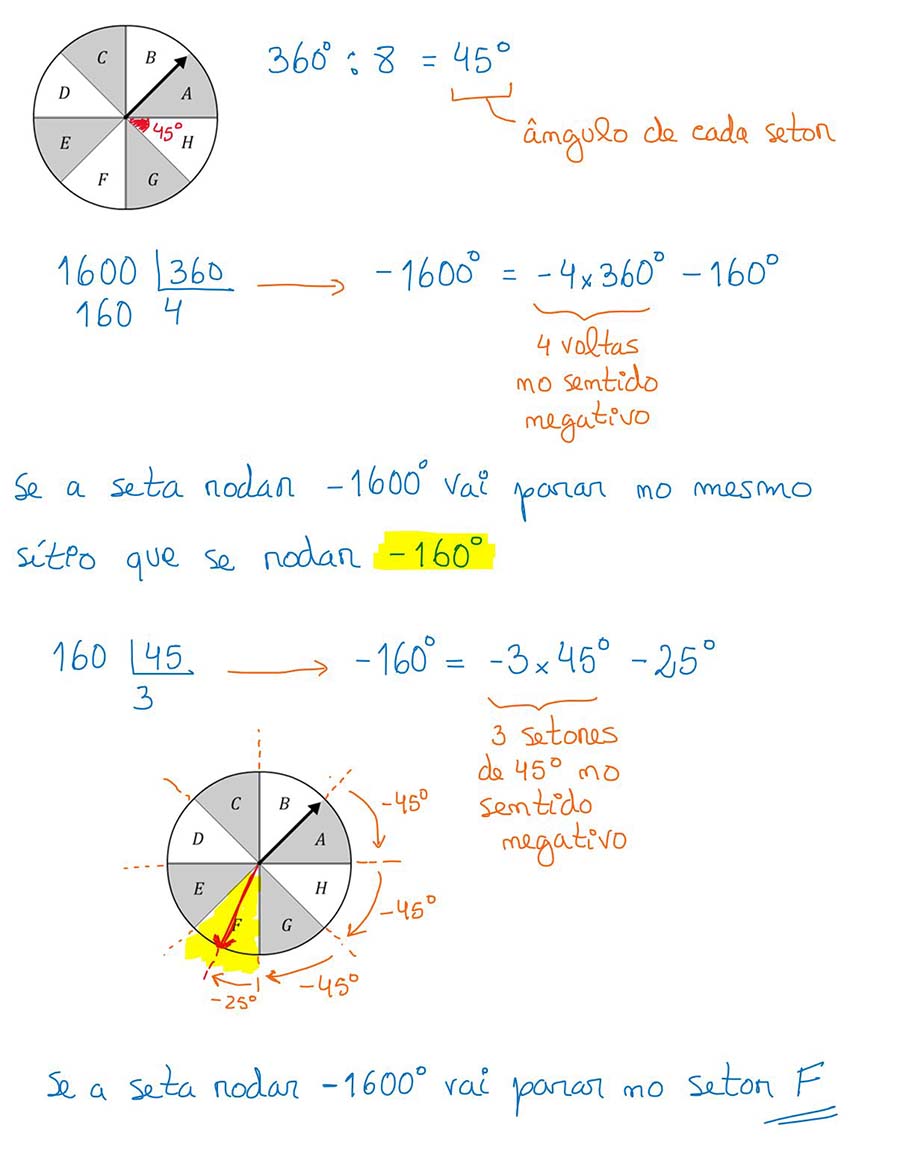 C B
360° : 8 = 45°
D A
45°
E H
F G
ângulo de cada setor
1600 360
160 4
-1600° = -4×360° -160°
4 voltas
no sentido
negativo
Se a seta rodar -1600° vai parar no mesmo
sítio que se rodar -160°
160 45
3
-160° = -3×45° -25°
3 setores
de 45° no
sentido
negativo
C B
-45°
D A
E H
-45°
F G
-45°
-25°
Se a seta rodar -1600° vai parar no setor F